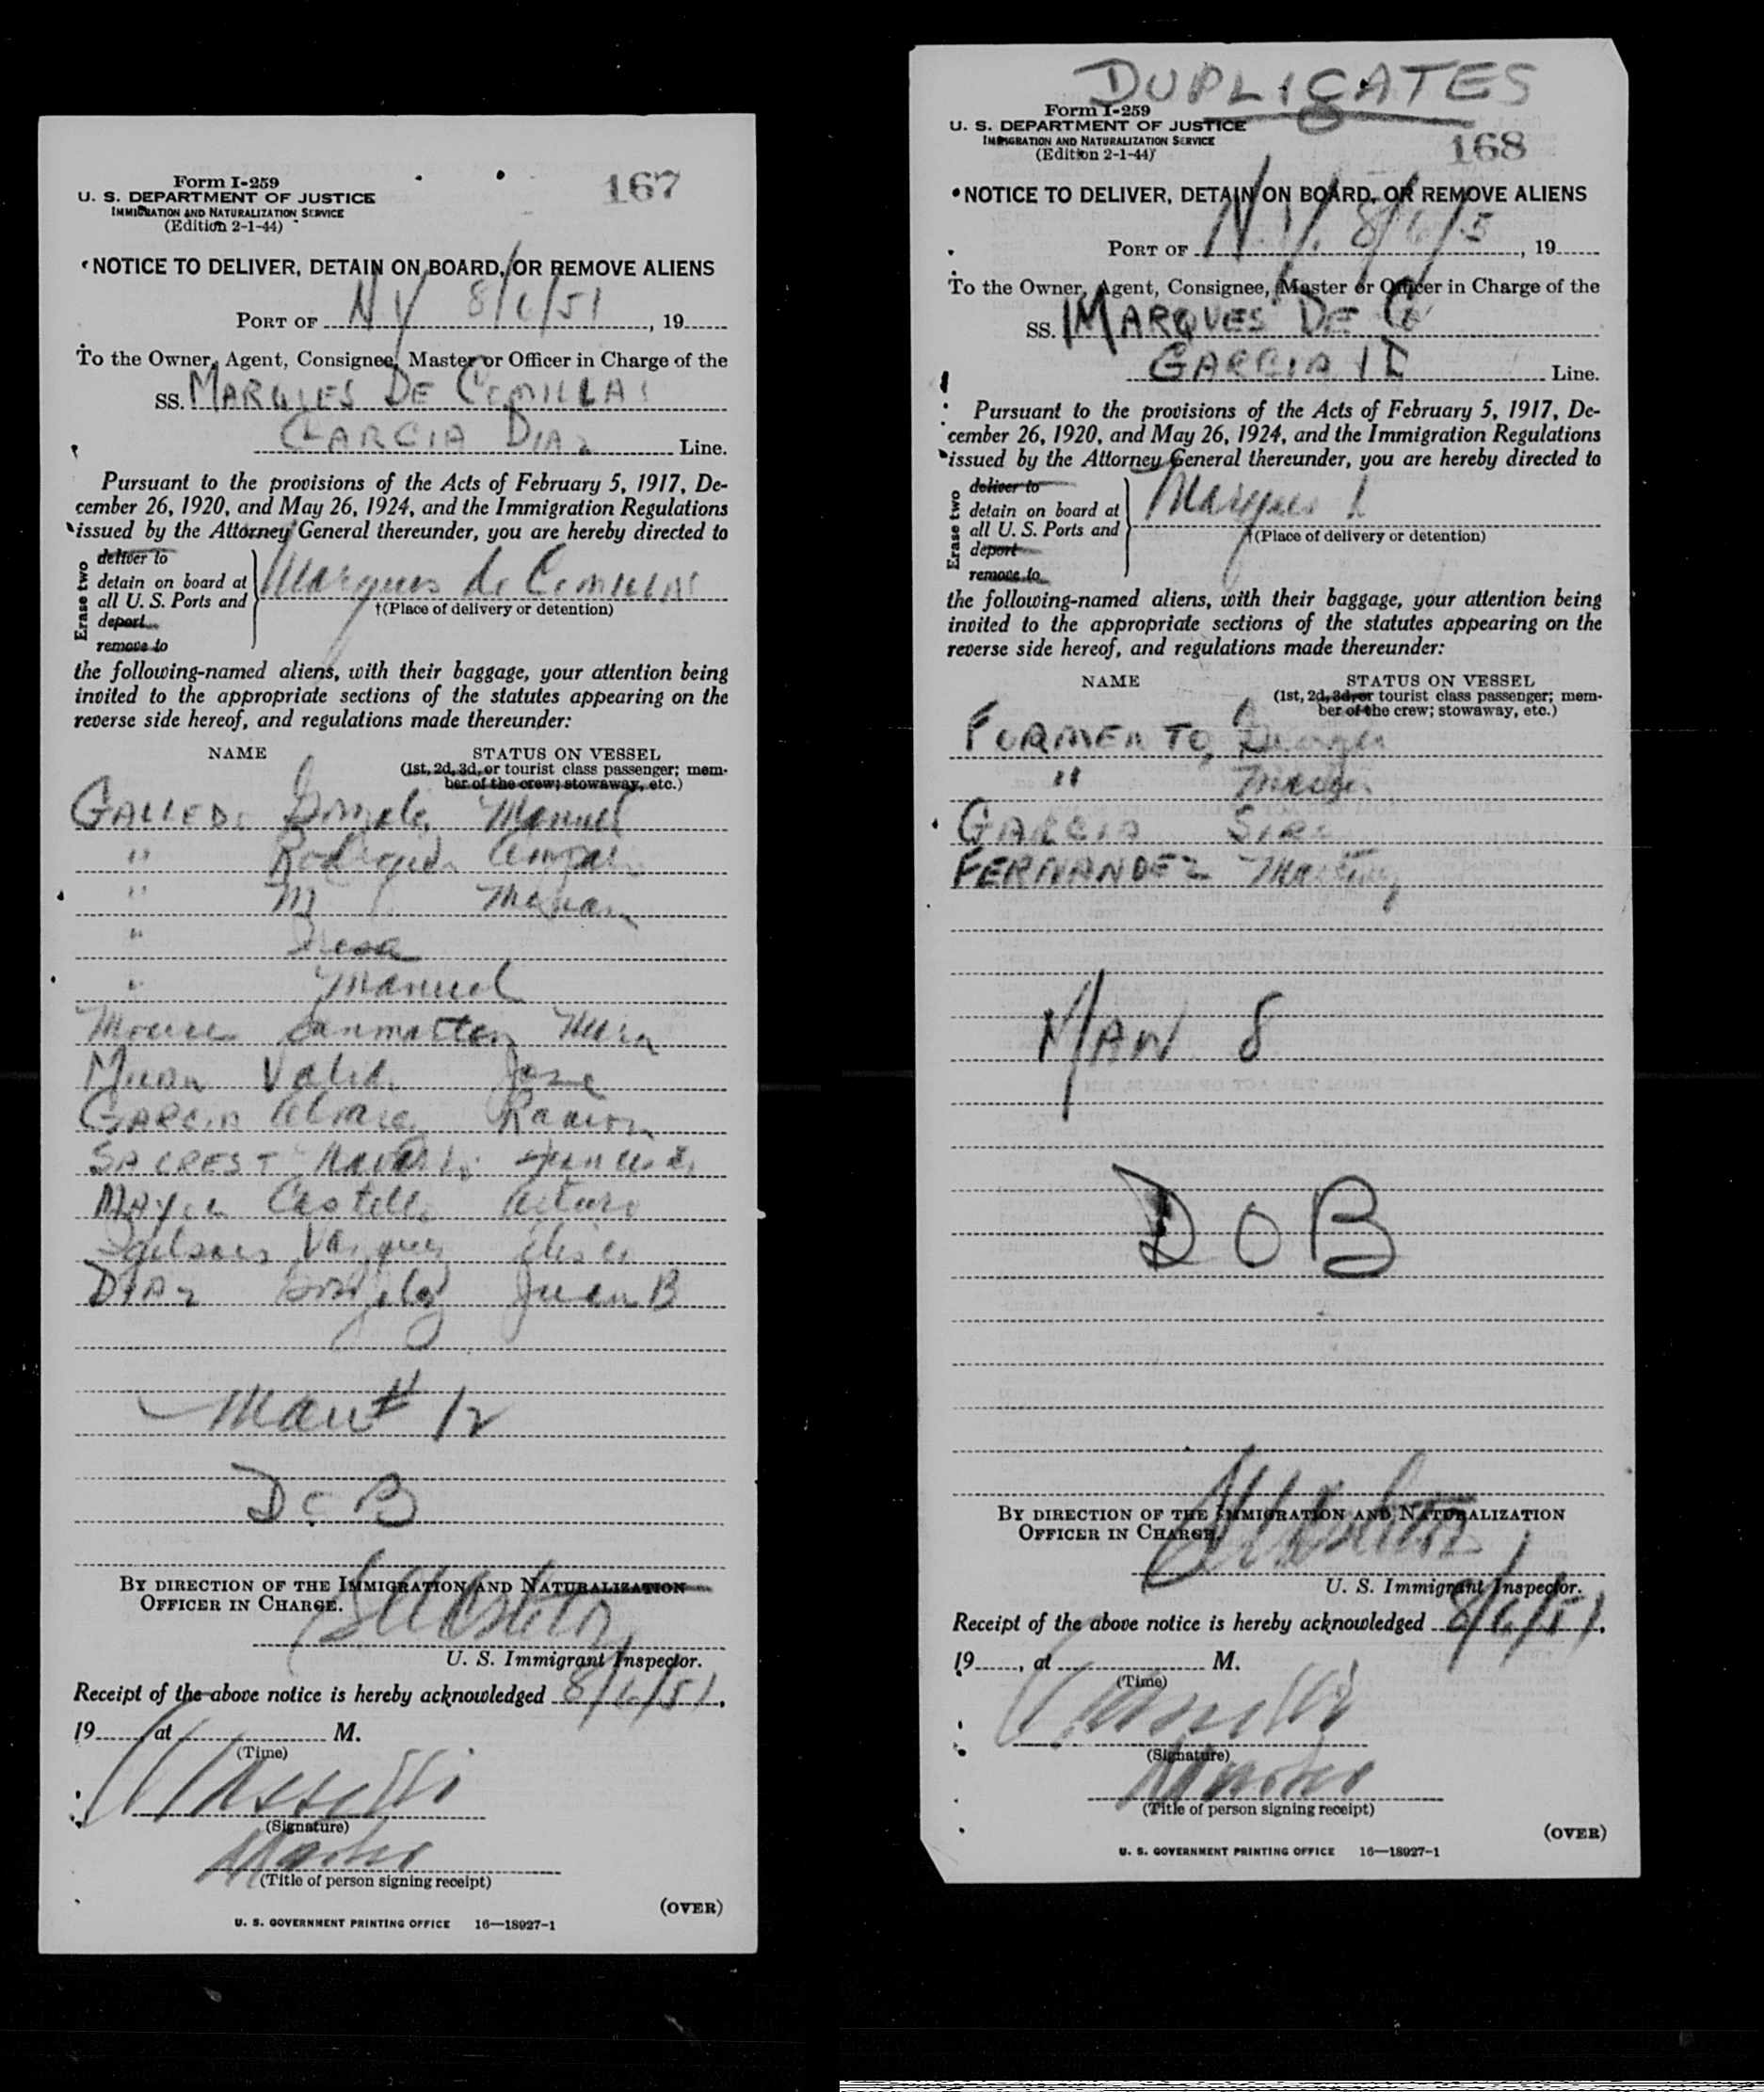 167
Form I-259
U. S. DEPARTMENT OF JUSTICE
IMMIGRATION AND NATURALIZATION SERVICE
(Edition 2-1-44)
NOTICE TO DELIVER, DETAIN ON BOARD, OR REMOVE ALIENS
PORT OF NY 8/6/51, 19
To the Owner, Agent, Consignee, Master or Officer in Charge of the
SS. MARQUES DE COMILLAS
GARCIA DIAZ Line.
Pursuant to the provisions of the Acts of February 5, 1917, De-
cember 26, 1920, and May 26, 1924, and the Immigration Regulations
issued by the Attorney General thereunder, you are hereby directed to
Erase two
deliver to
detain on board at
all U. S. Ports and
deport
remove to
Marques de COMILLAS
†(Place of delivery or detention)
the following-named aliens, with their baggage, your attention being
invited to the appropriate sections of the statutes appearing on the
reverse side hereof, and regulations made thereunder:
NAME STATUS ON VESSEL
(1st, 2d, 3d, or tourist class passenger; mem-
ber of the crew; stowaway, etc.)
Manuel
"
" M
"
" Manuel
Jose
GARCIA Ramon
SACREST
Castello Arturo
Vazquez
DIAZ Juan B
Man # 12
D O B
BY DIRECTION OF THE IMMIGRATION AND NATURALIZATION
OFFICER IN CHARGE.
U. S. Immigrant Inspector.
Receipt of the above notice is hereby acknowledged 8/6/51,
19, at M.
(Time)
(Signature)
Master
(Title of person signing receipt)
(OVER)
U. S. GOVERNMENT PRINTING OFFICE 16—18927-1
DUPLICATES
Form I-259
U. S. DEPARTMENT OF JUSTICE
IMMIGRATION AND NATURALIZATION SERVICE
(Edition 2-1-44)
168
NOTICE TO DELIVER, DETAIN ON BOARD, OR REMOVE ALIENS
PORT OF N.Y. 8/6/5, 19
To the Owner, Agent, Consignee, Master or Officer in Charge of the
SS. MARQUES DE C
GARCIA Line.
Pursuant to the provisions of the Acts of February 5, 1917, De-
cember 26, 1920, and May 26, 1924, and the Immigration Regulations
issued by the Attorney General thereunder, you are hereby directed to
Erase two
deliver to
detain on board at
all U. S. Ports and
deport
remove to
Marques
†(Place of delivery or detention)
the following-named aliens, with their baggage, your attention being
invited to the appropriate sections of the statutes appearing on the
reverse side hereof, and regulations made thereunder:
NAME STATUS ON VESSEL
(1st, 2d, 3d, or tourist class passenger; mem-
ber of the crew; stowaway, etc.)
"
GARCIA
FERNANDEZ
MAN 8
D O B
BY DIRECTION OF THE IMMIGRATION AND NATURALIZATION
OFFICER IN CHARGE.
U. S. Immigrant Inspector.
Receipt of the above notice is hereby acknowledged 8/6/51,
19, at M.
(Time)
(Signature)
(Title of person signing receipt)
(OVER)
U. S. GOVERNMENT PRINTING OFFICE 16—18927-1